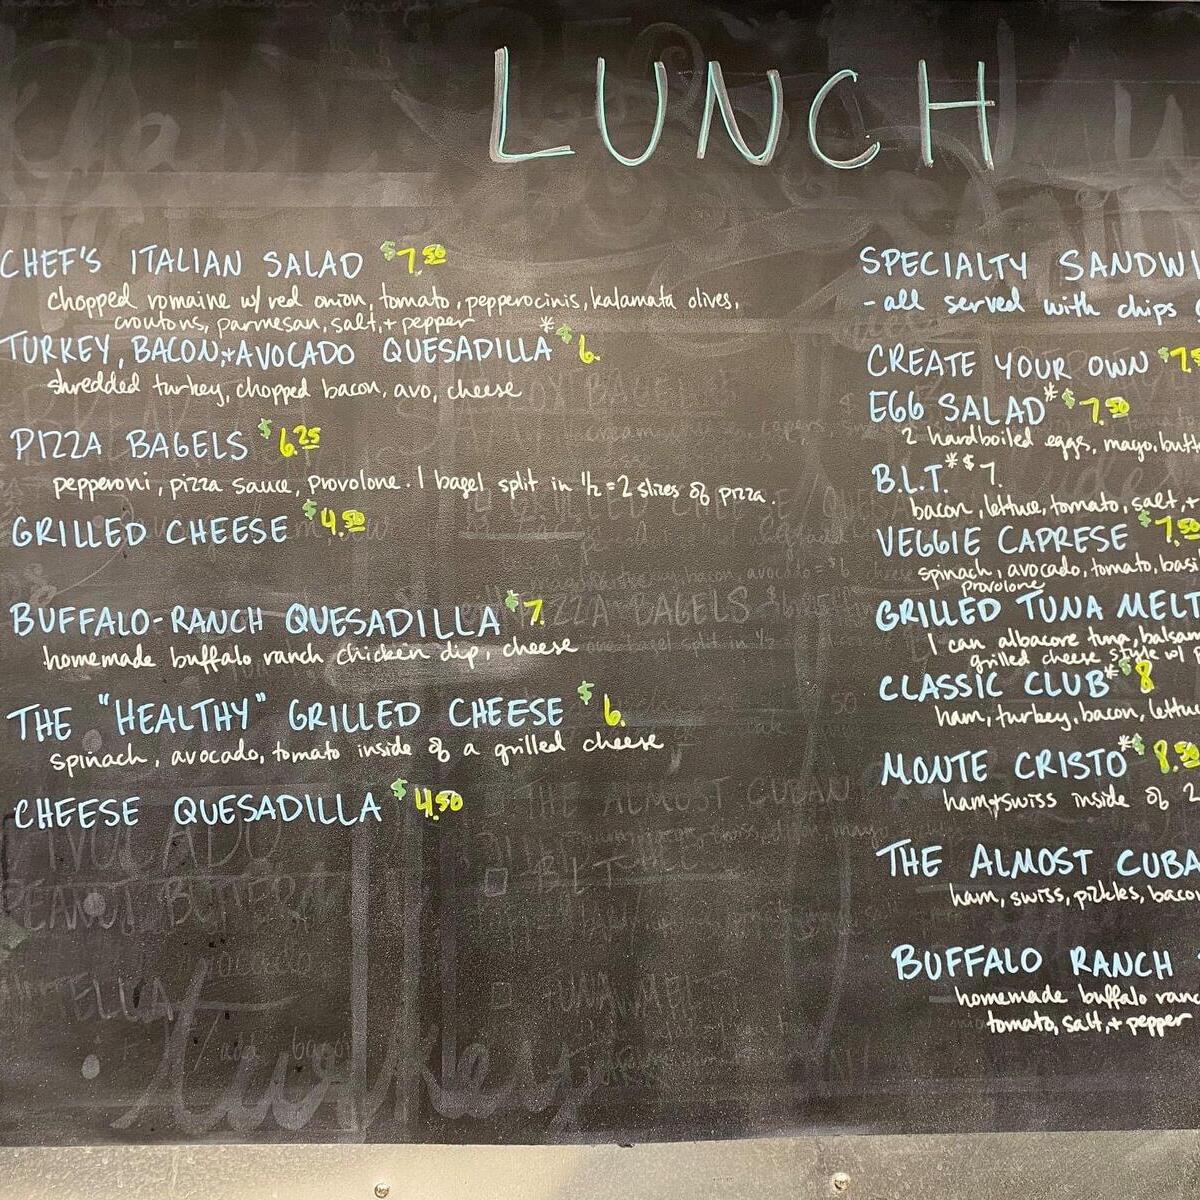 LUNCH
CHEF'S ITALIAN SALAD $7.50
chopped romaine w/ red onion, tomato, pepperocinis, kalamata olives,
croutons, parmesan, salt, + pepper
TURKEY, BACON, + AVOCADO QUESADILLA* $6.
shredded turkey, chopped bacon, avo, cheese
PIZZA BAGELS $6.25
pepperoni, pizza sauce, provolone. 1 bagel split in 1/2 = 2 slices of pizza.
GRILLED CHEESE $4.50
BUFFALO-RANCH QUESADILLA $7.
homemade buffalo ranch chicken dip, cheese
THE "HEALTHY" GRILLED CHEESE $6.
spinach, avocado, tomato inside of a grilled cheese
CHEESE QUESADILLA $4.50
SPECIALTY SANDWI
- all served with chips
CREATE YOUR OWN $7.5
EGG SALAD* $7.50
2 hardboiled eggs, mayo, butt
B.L.T.* $7.
bacon, lettuce, tomato, salt, +
VEGGIE CAPRESE $7.50
spinach, avocado, tomato, basi
provolone
GRILLED TUNA MELT
1 can albacore tuna, balsam
grilled cheese style w/ p
CLASSIC CLUB* $8
ham, turkey, bacon, lettu
MONTE CRISTO* $8.50
ham + swiss inside of 2
THE ALMOST CUBA
ham, swiss, pickles, bacon
BUFFALO RANCH
homemade buffalo ranc
tomato, salt, + pepper
PIZZA BAGELS
THE ALMOST CUBAN
BLT
TUNA MELT
AVOCADO
PEANUT BUTTER
TELLA
turkey